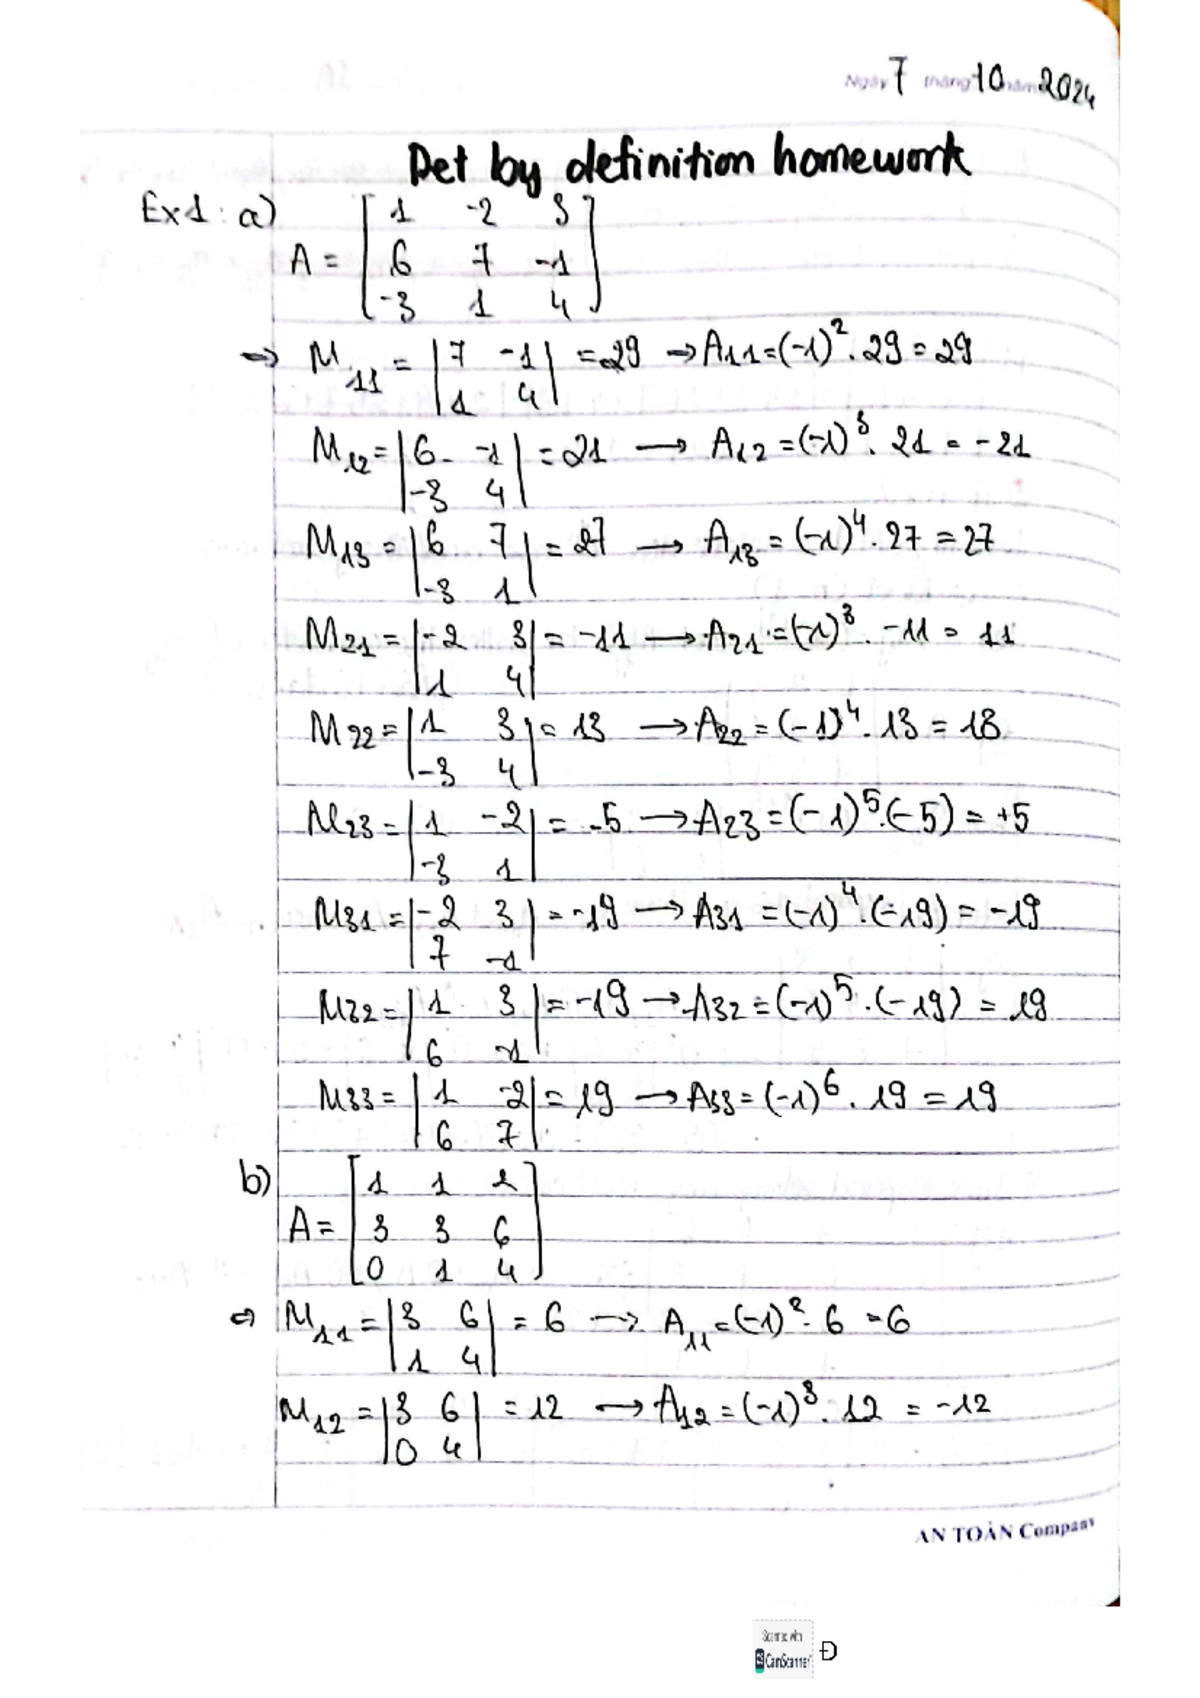 Ngày 7 tháng 10 năm 2024
Det by definition homework
Ex1: a)
A = [1 -2 3
6 7 -1
-3 1 4]
=> M11 = |7 -1
1 4| = 29 → A11 = (-1)^2 . 29 = 29
M12 = |6 -1
-3 4| = 21 → A12 = (-1)^3 . 21 = -21
M13 = |6 7
-3 1| = 27 → A13 = (-1)^4 . 27 = 27
M21 = |-2 3
1 4| = -11 → A21 = (-1)^3 . -11 = 11
M22 = |1 3
-3 4| = 13 → A22 = (-1)^4 . 13 = 13
M23 = |1 -2
-3 1| = -5 → A23 = (-1)^5.(-5) = +5
M31 = |-2 3
7 -1| = -19 → A31 = (-1)^4 .(-19) = -19
M32 = |1 3
6 -1| = -19 → A32 = (-1)^5 .(-19) = 19
M33 = |1 -2
6 7| = 19 → A33 = (-1)^6 . 19 = 19
b)
A = [1 1 2
3 3 6
0 1 4]
=> M11 = |3 6
1 4| = 6 → A11 = (-1)^2 . 6 = 6
M12 = |3 6
0 4| = 12 → A12 = (-1)^3 . 12 = -12
AN TOÀN Company
Scanned with
CS CamScanner
Đ